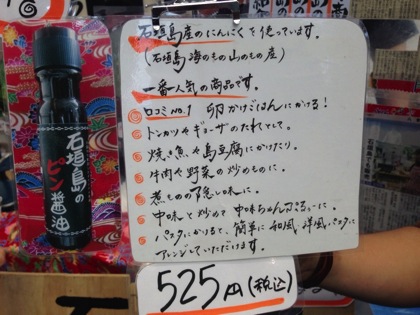 石垣島産のにんにくを使っています。
(石垣島 海のもの山のもの産)
一番人気の商品です。
口コミNo.1 卵かけごはんにかける!
トンカツやギョーザのたれとして。
焼き魚や島豆腐にかけたり。
牛肉や野菜の炒めものに。
煮ものの隠し味に。
中味と炒めて中味ちゃんぷるーに。
パスタにかけると、簡単に和風、洋風パスタに
アレンジしていただけます。
525円(税込)
石垣島の
ピン
醤油